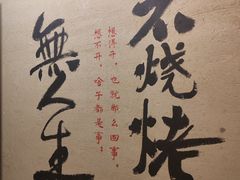 不烧烤
想得开,也就那么回事,
想不开,啥子都是事:
無人生